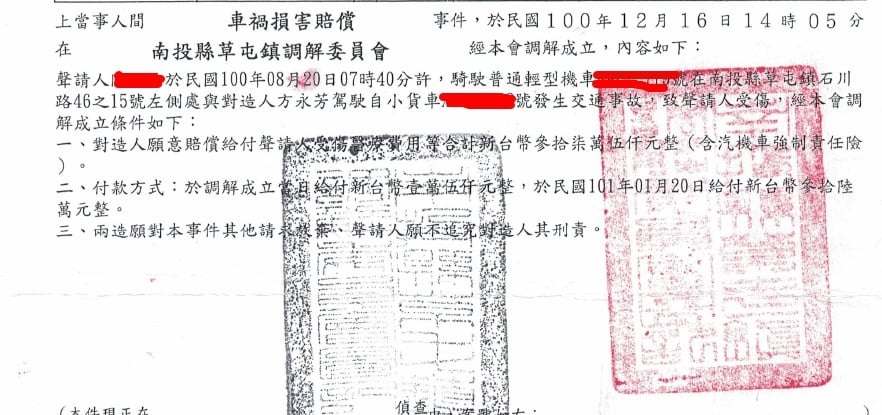 上當事人間 車禍損害賠償 事件，於民國100年12月16日14時05分
在 南投縣草屯鎮調解委員會 經本會調解成立，內容如下：
聲請人 於民國100年08月20日07時40分許，騎駛普通輕型機車 號在南投縣草屯鎮石川
路46之15號左側處與對造人方永芳駕駛自小貨車 號發生交通事故，致聲請人受傷，經本會調
解成立條件如下：
一、對造人願意賠償給付聲請人受傷醫療費用等合計新台幣參拾柒萬伍仟元整（含汽機車強制責任險
）。
二、付款方式：於調解成立當日給付新台幣壹萬伍仟元整，於民國101年01月20日給付新台幣參拾陸
萬元整。
三、兩造願對本事件其他請求放棄、聲請人願不追究對造人其刑責。
（本件現正在 偵查